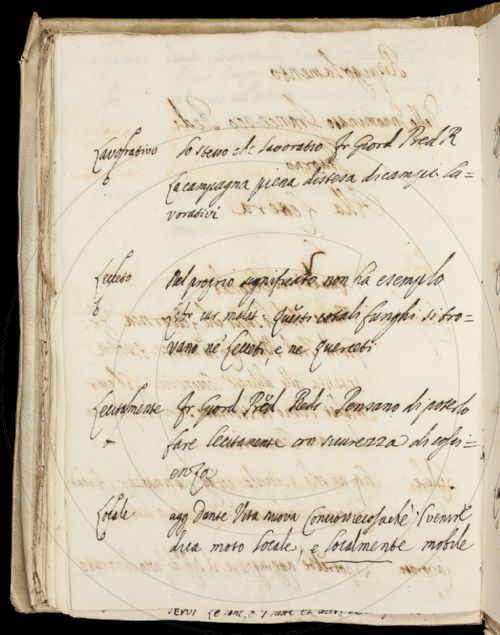 Lavorativo Lo stesso che lavoratio fr Giord Pred R
La campagna piena distesa di campi la=
vorativi
Lecceto Nel proprio significato non ha esemplo
libr cur malat: Questi cotali funghi si tro=
vano ne Lecceti, e ne Querceti
Lecitamente fr. Giord Pred Redi Pensano di poterlo
fare lecitamente con sicurezza di cosci=
enza
Locale agg Dante Vita nuova
dica moto locale, e localmente mobile